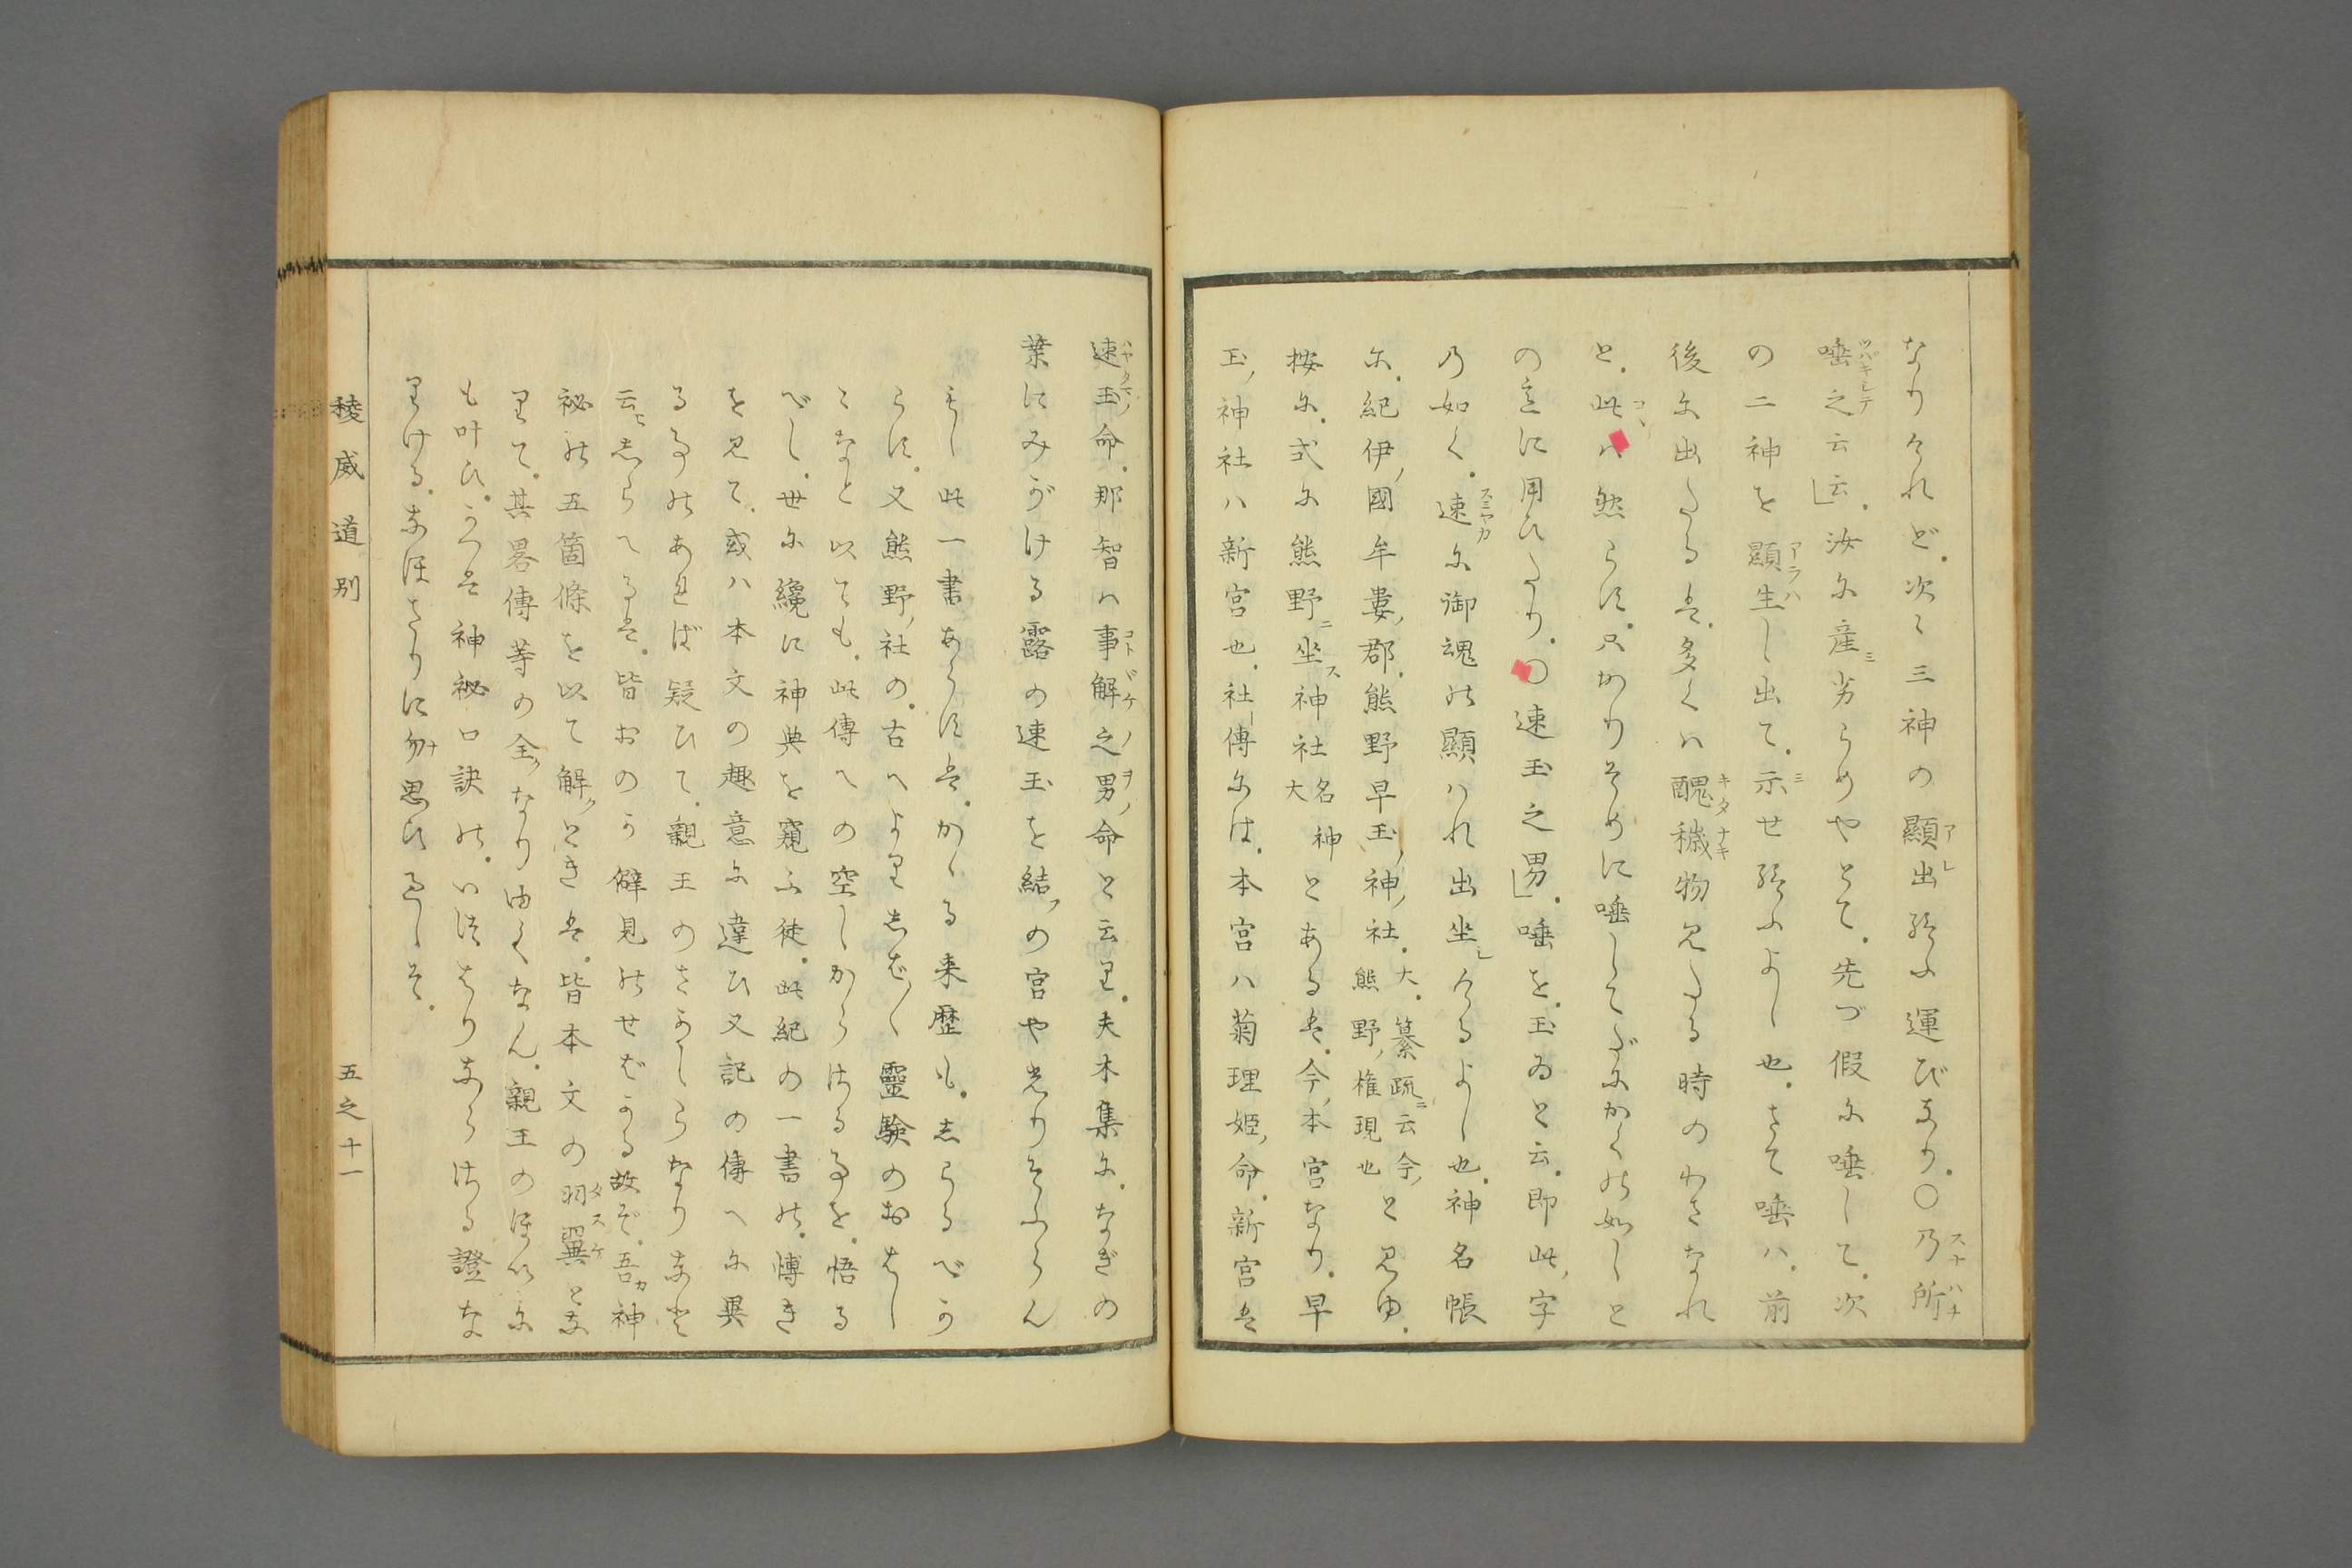 なりけれど。次々三神の顯出給ふ運びなり。〇乃所
唾之云云」。汝に産劣らめやとて。先づ假に唾して。次
の二神を顯生し出て。示せ給ふよし也。さて唾ハ。前
後に出たるは。多くハ醜穢物見たる時のわざなれ
ど。此ハ然らず。只かりそめに唾してだにかくの如しと
の意に用ひたり。〇速玉之男」。唾を。玉ゐと云。即此字
乃如く。速に御魂の顯ハれ出坐けるよし也。神名帳
に。紀伊國牟婁郡。熊野早玉神社。大。纂疏云今熊野権現也と見ゆ。
按に。式に熊野坐神社名神大とあるは。今本宮なり。早
玉神社ハ新宮也。社傳には。本宮ハ菊理姫命。新宮は
速玉命。那智ハ事解之男命と云り。夫木集に。なぎの
葉にみがける露の速玉を結の宮や光りそふらん
もし此一書あらずは。かゝる来歴も。しらるべか
らず。又熊野社の。古へよりしば〱靈験のおはし
ゝなど以ても。此傳への空しからざる事を。悟る
べし。世に纔に神典を窺ふ徒。此紀の一書の。博き
を見て。或ハ本文の趣意に違ひ又記の傳へに異
る事のあれば疑ひて。親王のさかしらなりなど
云しらへるは。皆おのが僻見のせばかる故ぞ。吾神
祕の五箇條を以て解とき は。皆本文の羽翼とな
りて。其畧傳等の全なり ゆくなん。親王のほいに
も叶ひ。かつは神祕口訣の。いつはりならざる證な
りける。なほざりに勿思ひ過しそ。
稜威道別
五之十一